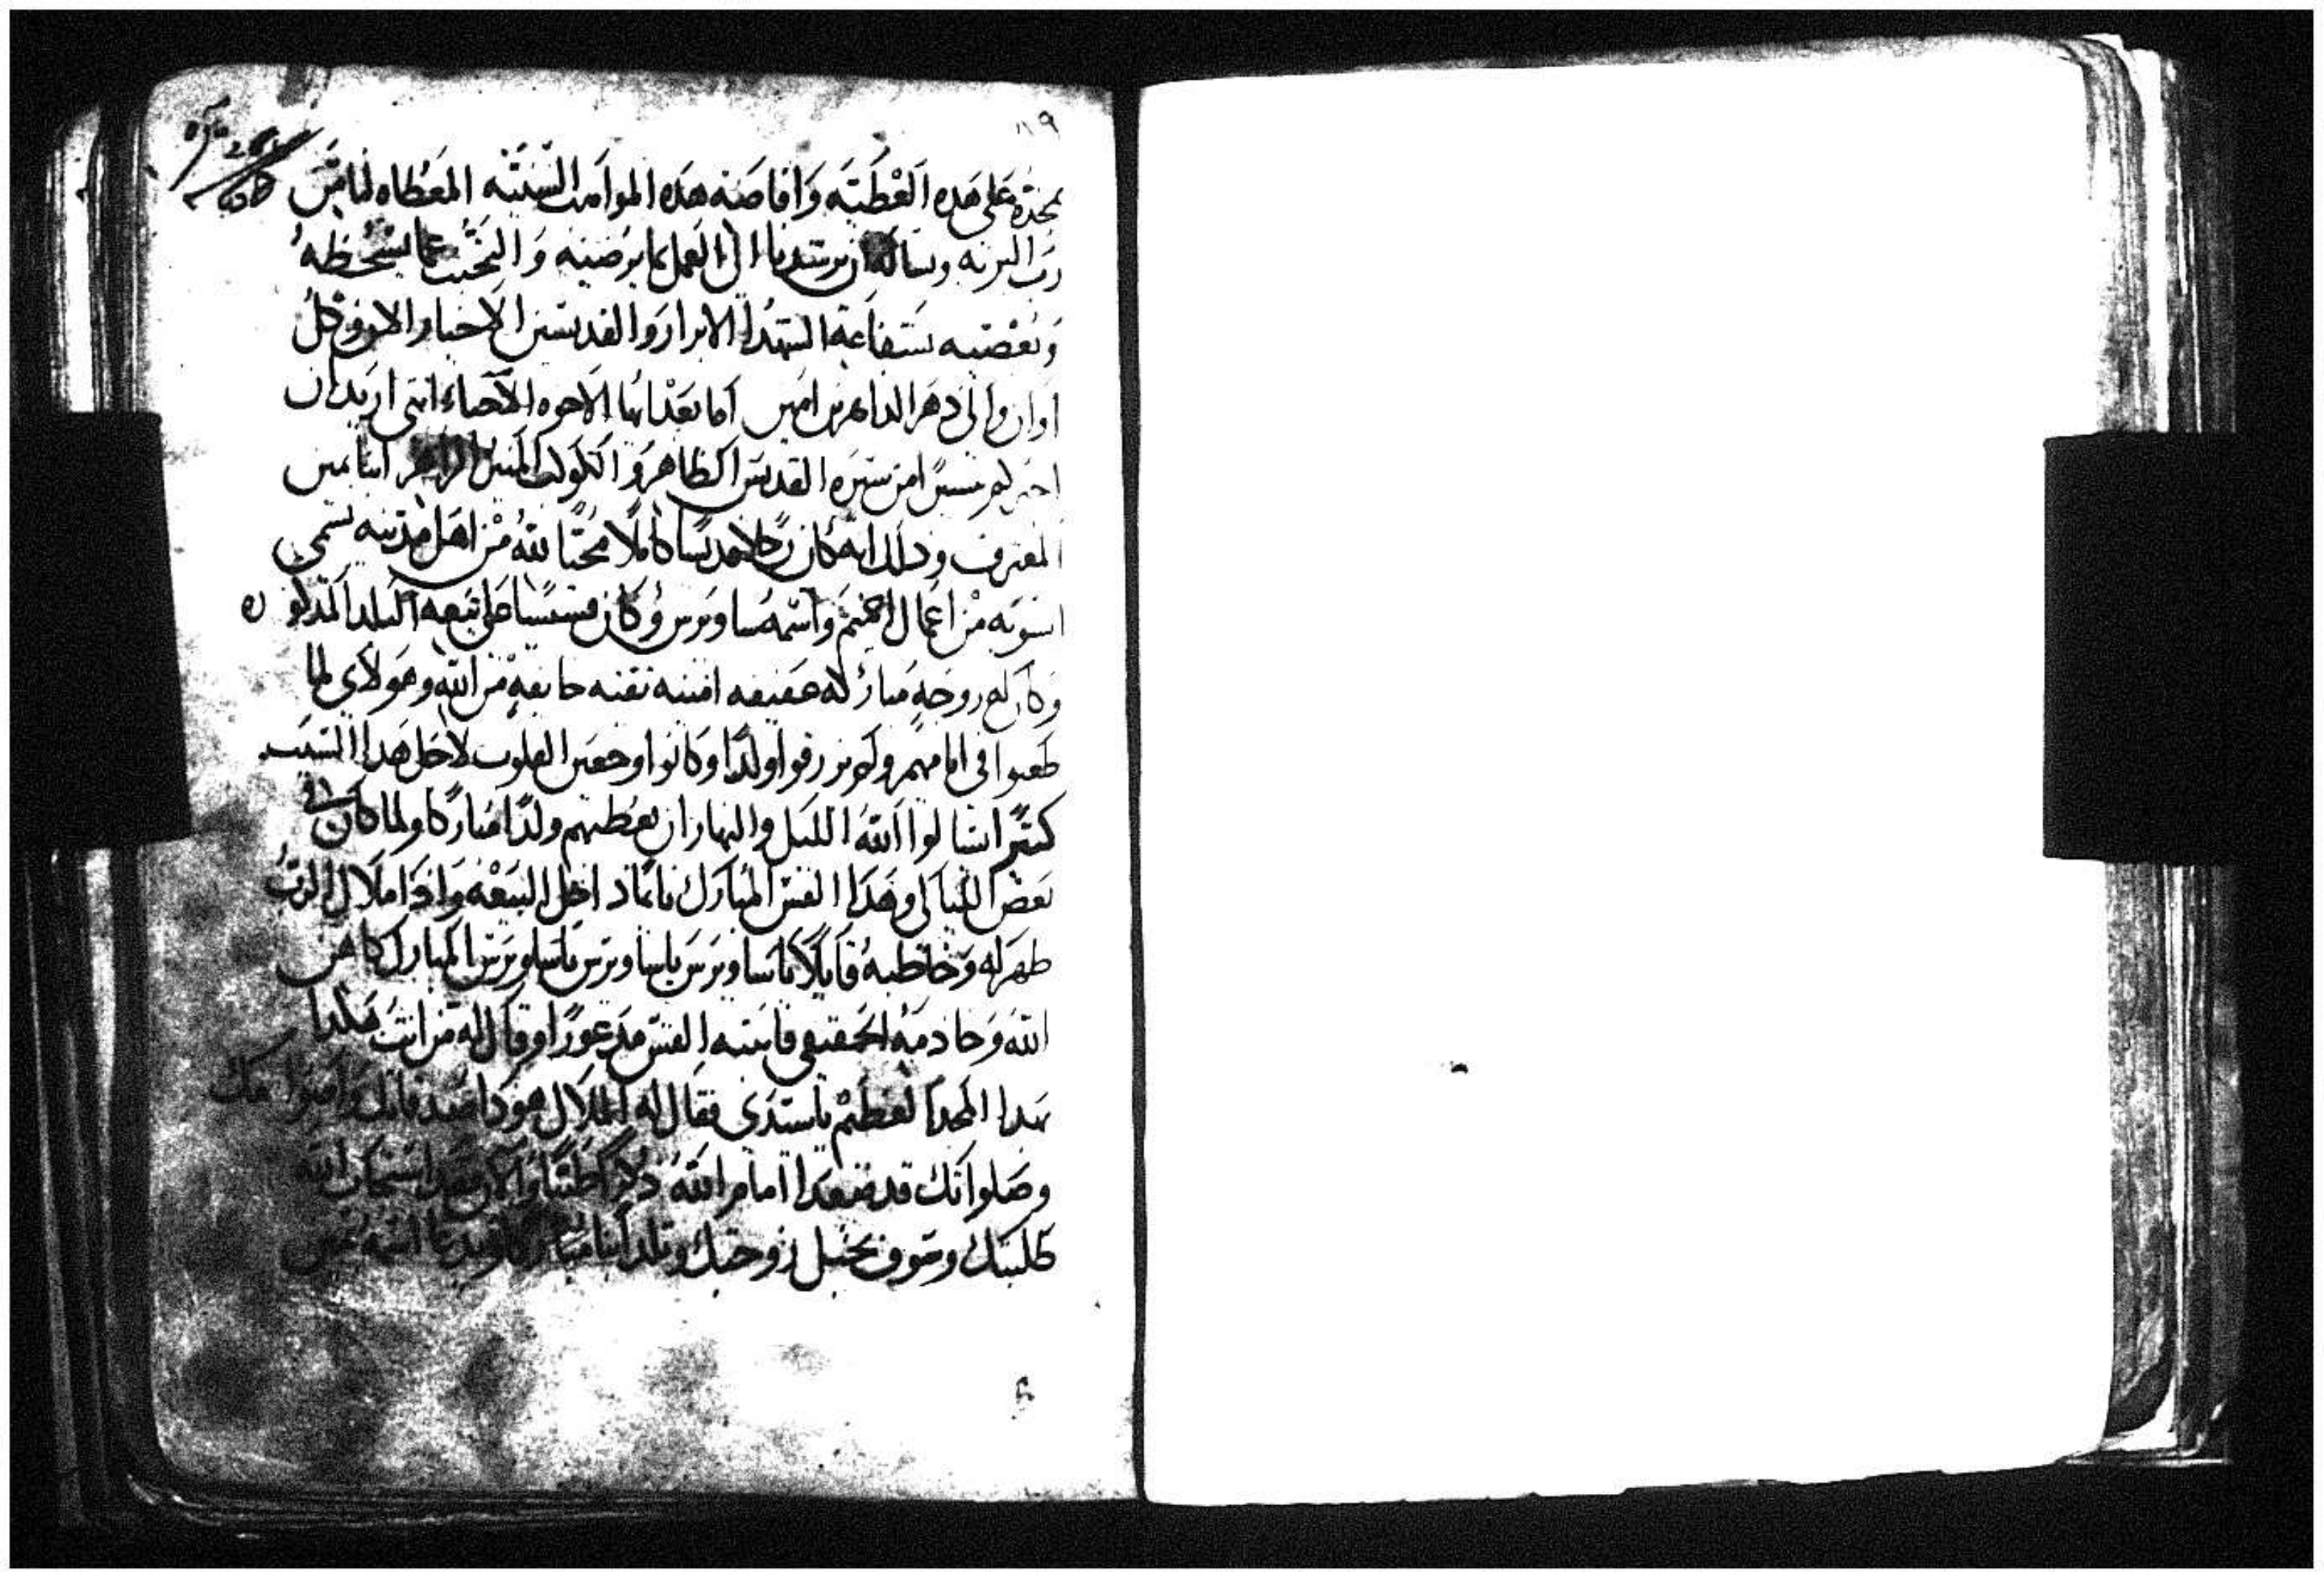 نمجده على هذه العطيه وافاضنه هذه المواهب السنيه المعطاه لنا من
رب البريه ونساله ان يرشدنا الى العمل بما يرضيه والتجنب عما يسخطه
ويغضبه بشفاعة الشهدا الابرار والقديسين الاخيار الان وكل
اوان والى دهر الداهرين امين اما بعد ايها الاخوه الاحباء انني اريد ان
اخبركم يسيرًا من سيره القديس الطاهر والكوكب المنير الزاهر ابنا
المعترف وذلك انه كان رجلا قديسًا كاملًا محبًا لله من اهل مدينه تسمى
من اعمال اخميم واسمه ساويرس وكان قسيسًا على بيعه البلد المذكوره
وكان له زوجة مباركه عفيفه امينه تقيه خايفه من الله وهولاي لما
طعنوا في ايامهم ولم يرزقوا ولدًا وكانوا وجعين القلوب لاجل هذا السبب
كثيرًا سالوا الله الليل والنهار ان يعطيهم ولدًا مباركا ولما كان في
بعض الليالي وهذا القس المبارك نايمًا داخل البيعه واذا ملاك الرب
ظهر له وخاطبه قايلًا يا ساويرس يا ساويرس يا ساويرس المبارك كاهن
الله وخادمه الحقيقي فانتبه القس مدعورًا وقال له من انت هكذا
بهذا المجد العظيم يا سيدي فقال له الملاك هوذا
وصلواتك قد صعدا امام الله والان فقد استجاب الله
طلبتك وسوف تحبل زوجتك وتلد ابنا مباركا اسمه